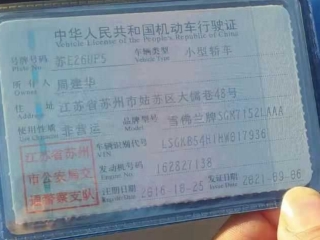 中华人民共和国机动车行驶证
Vehicle License of the People's Republic of China
号牌号码 苏E26UP5 车辆类型 小型轿车
所有人 周建华
住址 江苏省苏州市姑苏区大儒巷48号
使用性质 非营运 品牌型号 雪佛兰牌SGM7152LAAA
江苏省苏州
市公安局交
通警察支队
车辆识别代号
VIN
发动机号码 162821138
注册日期 2016-10-25 发证日期 2021-09-06